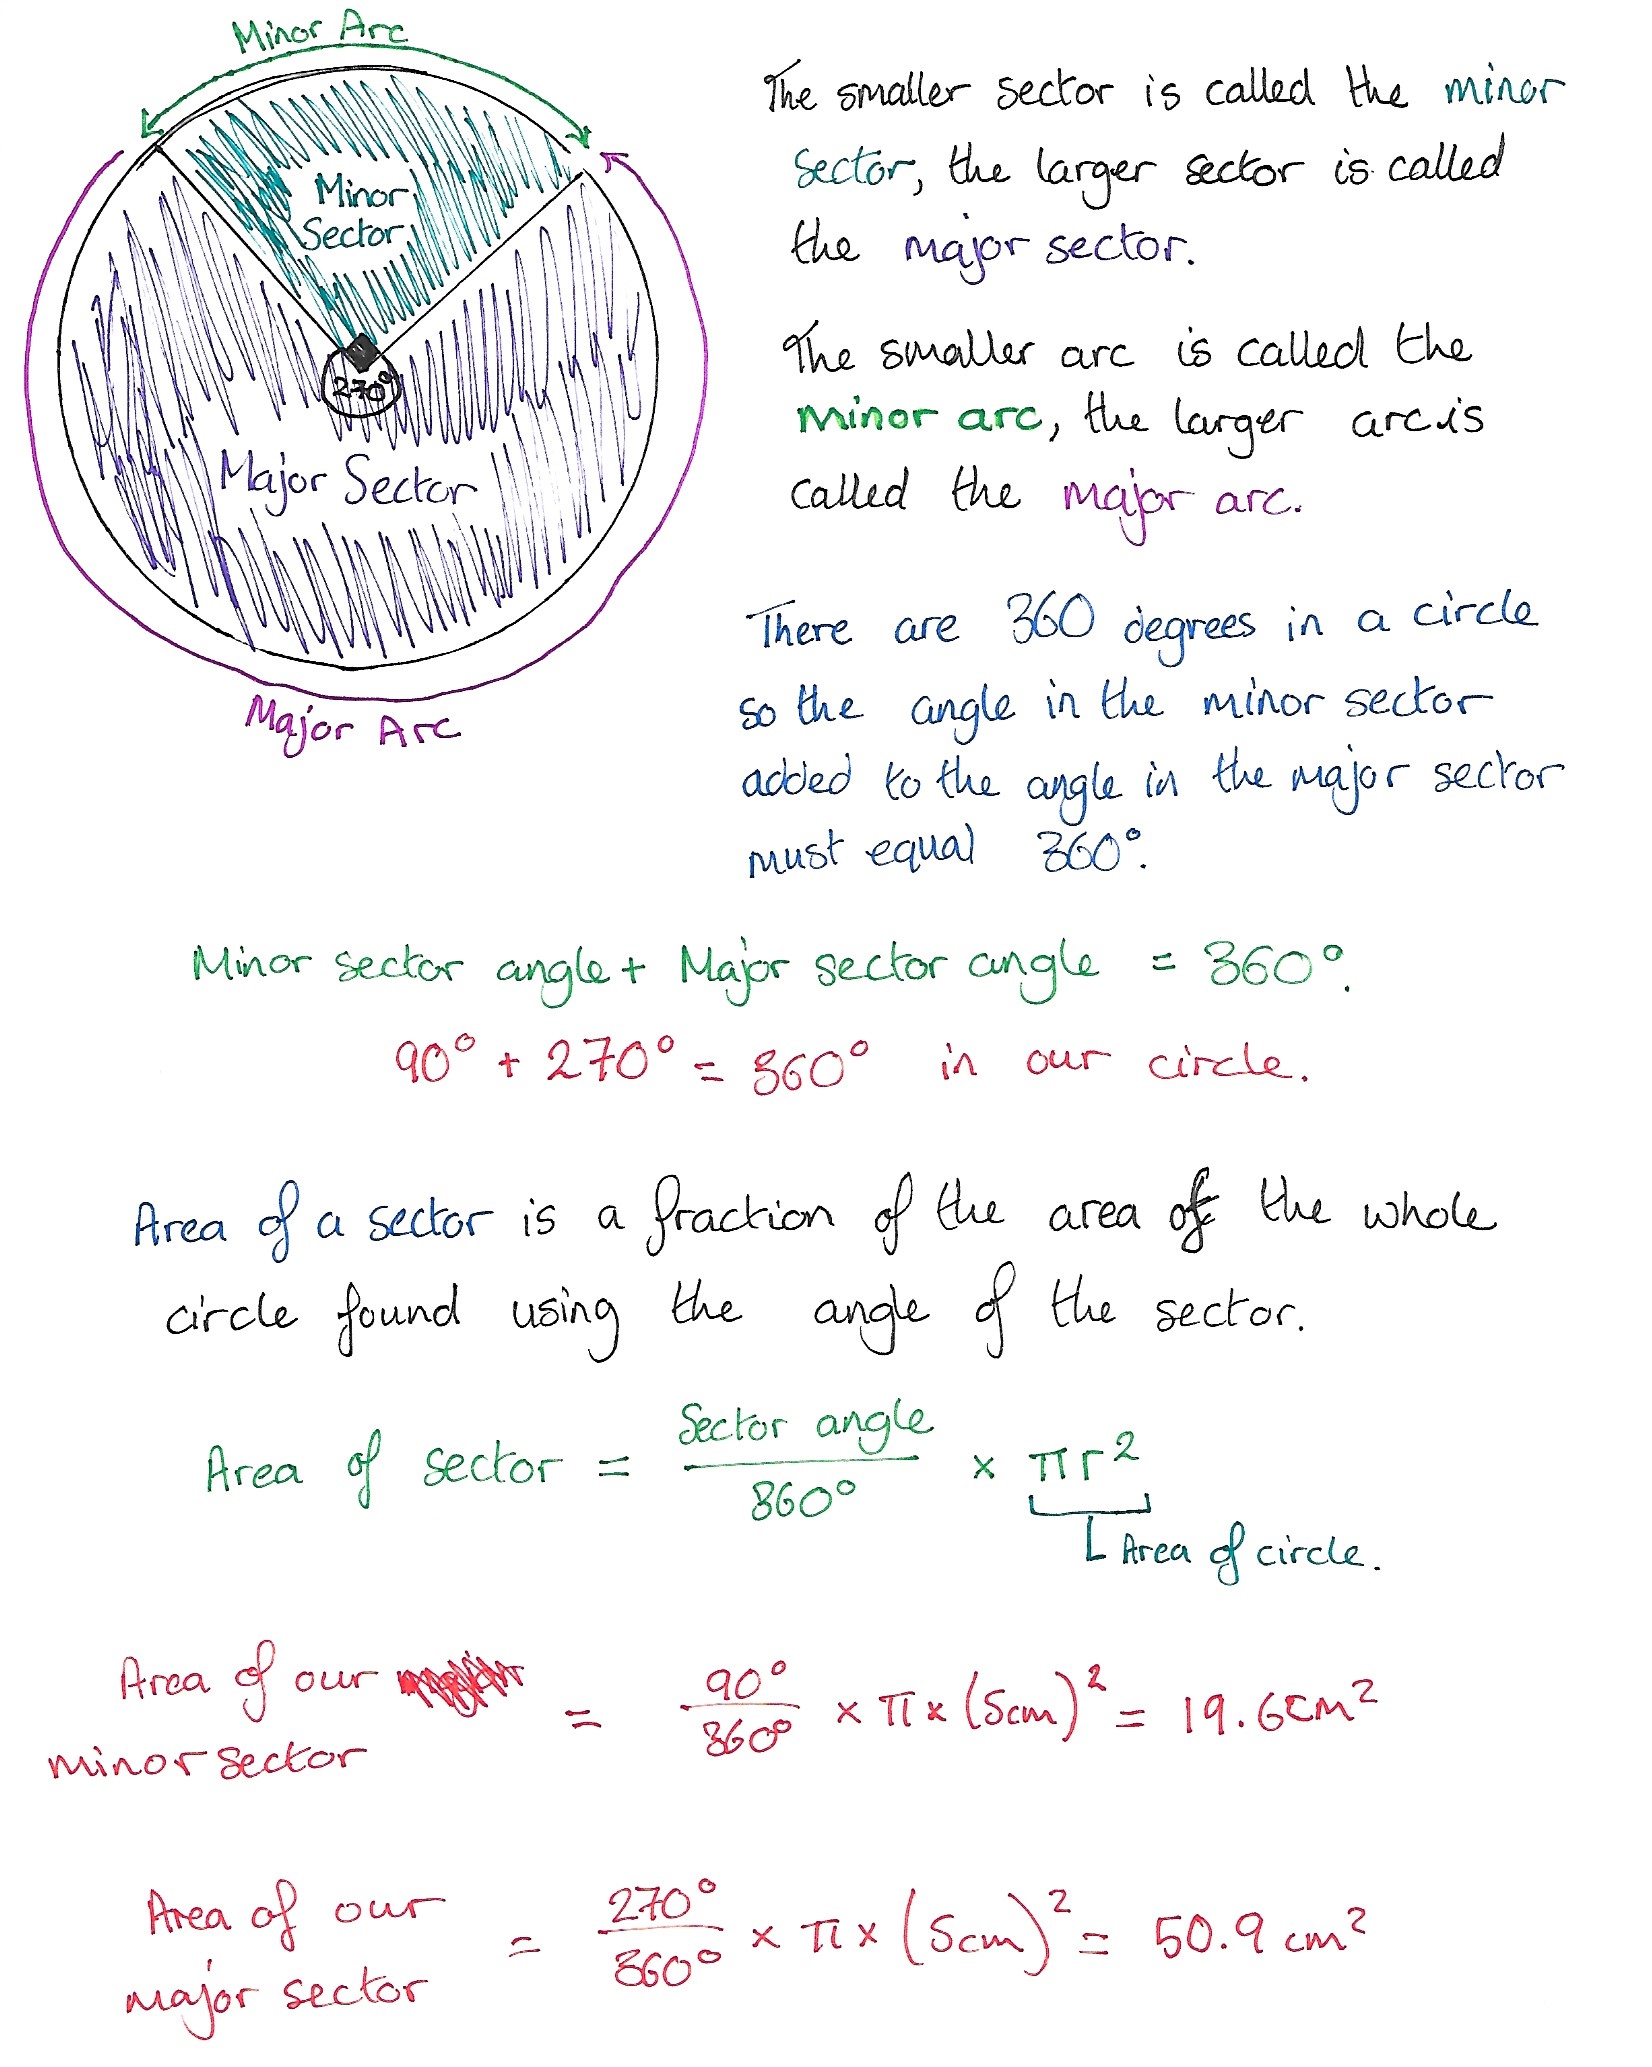 Minor Arc
Minor
Sector
270°
Major Sector
Major Arc
The smaller sector is called the minor
sector, the larger sector is called
the major sector.
The smaller arc is called the
minor arc, the larger arc is
called the major arc.
There are 360 degrees in a circle
so the angle in the minor sector
added to the angle in the major sector
must equal 360°.
Minor sector angle + Major sector angle = 360°.
90° + 270° = 360° in our circle.
Area of a sector is a fraction of the area of the whole
circle found using the angle of the sector.
Area of sector = Sector angle / 360° × πr²
Area of circle.
Area of our
minor sector = 90° / 360° × π × (5cm)² = 19.6cm²
Area of our
major sector = 270° / 360° × π × (5cm)² = 50.9 cm²